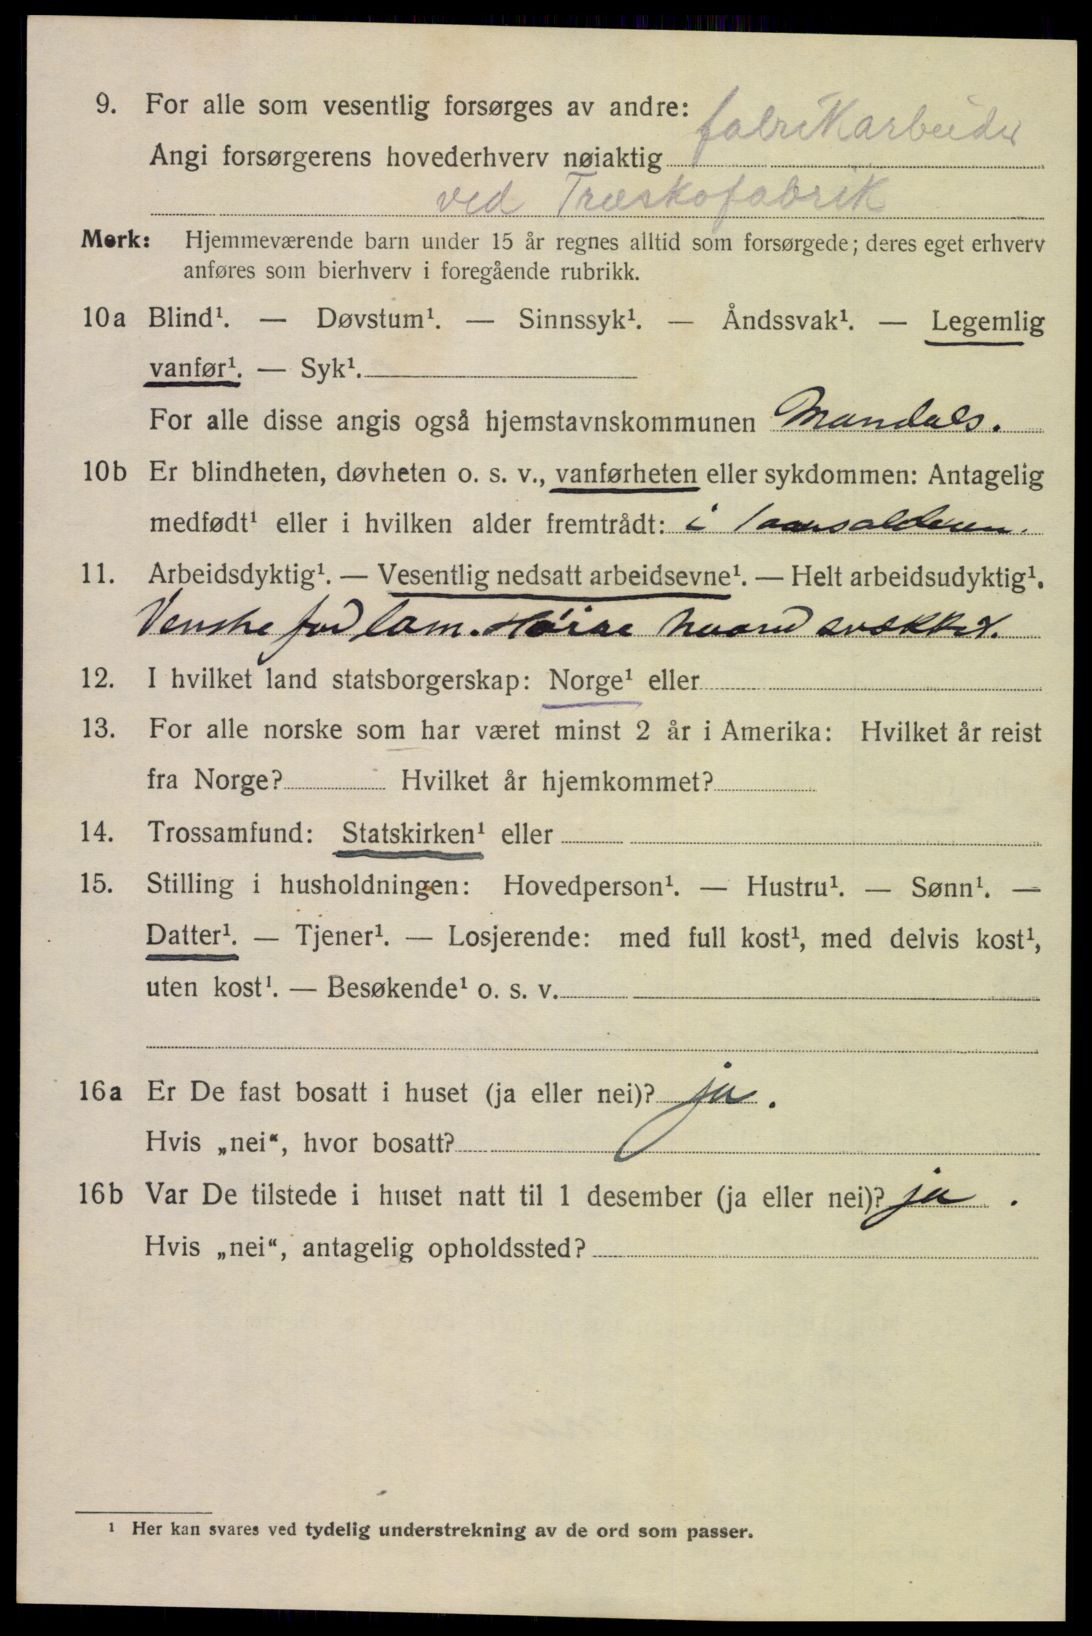 9. For alle som vesentlig forsørges av andre: fabrikarbeider
Angi forsørgerens hovederhverv nøiaktig
ved Træskofabrik
Merk: Hjemmeværende barn under 15 år regnes alltid som forsørgede; deres eget erhverv
anføres som bierhverv i foregående rubrikk.
10a Blind¹. — Døvstum¹. — Sinnssyk¹. — Åndssvak¹. — Legemlig
vanfør¹. — Syk¹.
For alle disse angis også hjemstavnskommunen Mandals.
10b Er blindheten, døvheten o. s. v., vanførheten eller sykdommen: Antagelig
medfødt¹ eller i hvilken alder fremtrådt: i 1 aarsalderen.
11. Arbeidsdyktig¹. — Vesentlig nedsatt arbeidsevne¹. — Helt arbeidsudyktig¹.
Venstre fod lam. Høire haand svækket.
12. I hvilket land statsborgerskap: Norge¹ eller
13. For alle norske som har været minst 2 år i Amerika: Hvilket år reist
fra Norge? Hvilket år hjemkommet?
14. Trossamfund: Statskirken¹ eller
15. Stilling i husholdningen: Hovedperson¹. — Hustru¹. — Sønn¹. —
Datter¹. — Tjener¹. — Losjerende: med full kost¹, med delvis kost¹,
uten kost¹. — Besøkende¹ o. s. v.
16a Er De fast bosatt i huset (ja eller nei)? ja.
Hvis „nei“, hvor bosatt?
16b Var De tilstede i huset natt til 1 desember (ja eller nei)? ja.
Hvis „nei“, antagelig opholdssted?
¹ Her kan svares ved tydelig understrekning av de ord som passer.